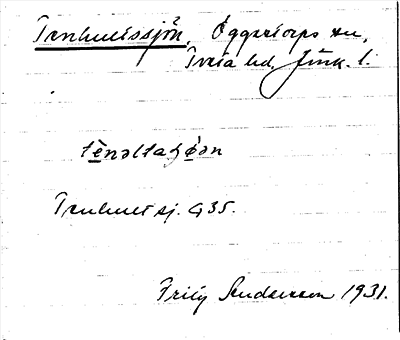 Tenhultssjön, Öggestorps sn,
Tveta hd, Jönk. l.
tènəltaʃǿən
Tenhult sj. G35.
Fritz Sandersson 1931.